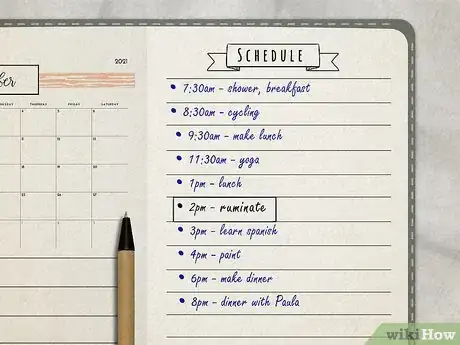 ber
2021
THURSDAY FRIDAY SATURDAY
SCHEDULE
• 7:30am - shower, breakfast
• 8:30am - cycling
• 9:30am - make lunch
• 11:30am - yoga
• 1pm - lunch
• 2pm - ruminate
• 3pm - learn spanish
• 4pm - paint
• 6pm - make dinner
• 8pm - dinner with Paula
wikiHow